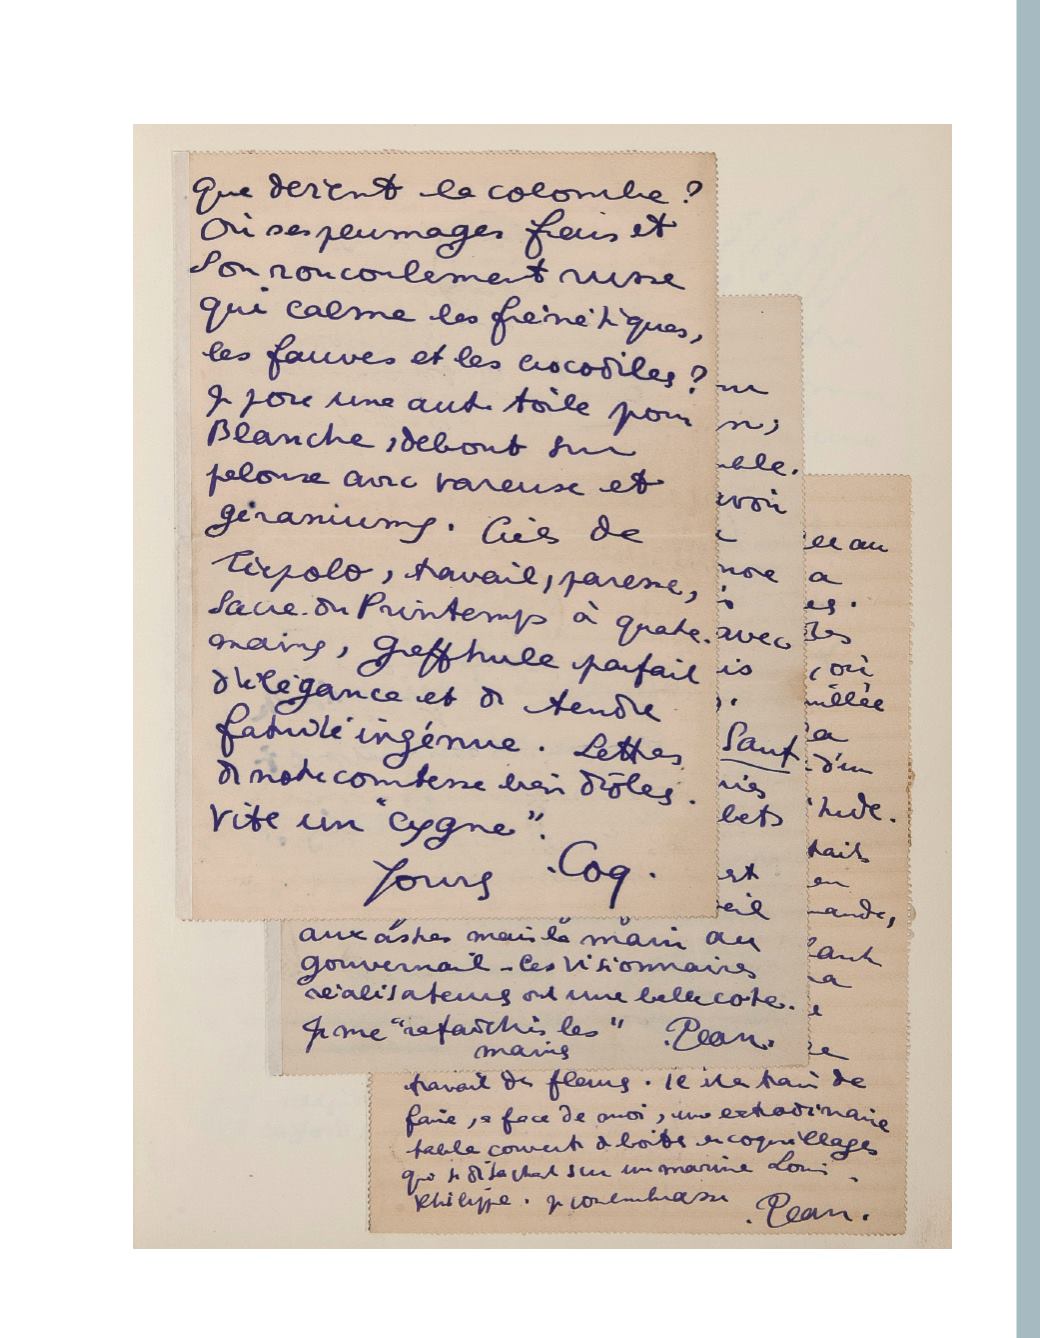 que devient la colombe ?
Où ses plumages frais et
Son roucoulement russe
qui calme les frénétiques,
les fauves et les crocodiles ?
Je pose une autre toile pour
Blanche, debout sur
pelouse avec vareuse et
géraniums. Ciels de
Tiepolo, travail, paresse,
Sacre du Printemps à quatre.
mains, Greffhule parfait
d'élégance et de tendre
fatuité ingénue. Lettres
de notre comtesse très drôles.
Vite un "cygne".
Yours .Coq.
ble.
avoir
avec
Sauf
est
aux astres mais la main au
gouvernail - Les visionnaires
réalisateurs ont une belle cote.
Je me "rafraîchis les"
mains
.Jean.
au
a
es.
, où
d'un
tude.
en
mande,
travail des fleurs. Il est en train de
faire, en face de moi, une extraordinaire
table couverte de boîtes en coquillages
qui se détachent sur un marine Louis
Philippe. Je vous embrasse
.Jean.